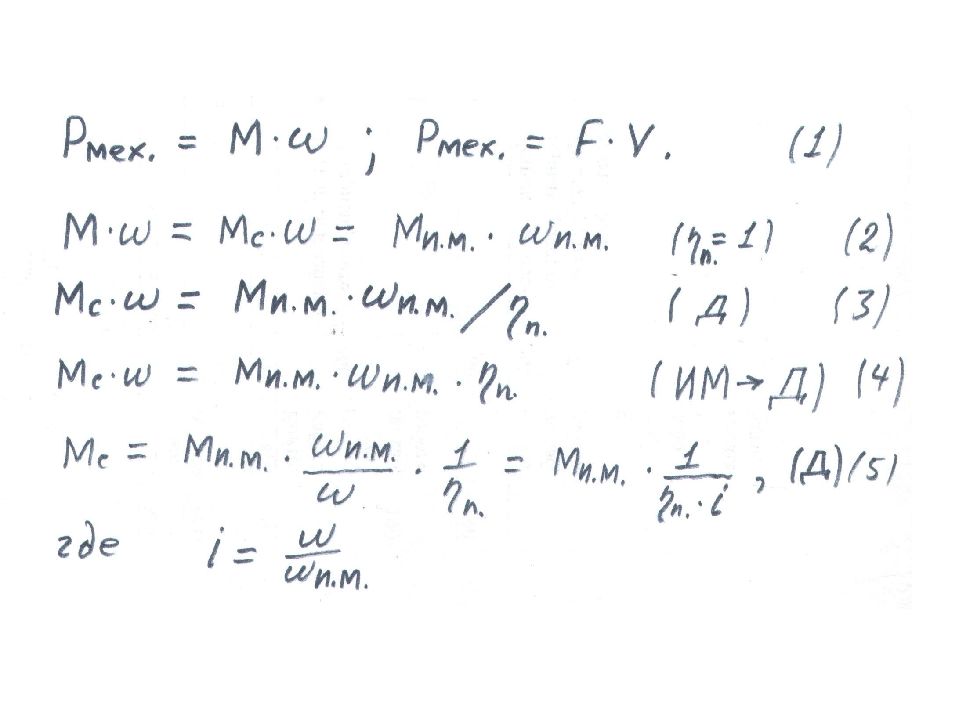 Pмех. = M·ω ; Pмех. = F·V. (1)
M·ω = Mc·ω = Mп.м. · ωп.м. (ηп.=1) (2)
Mc·ω = Mп.м. · ωп.м. / ηп. (Д) (3)
Mc·ω = Mп.м. · ωп.м. · ηп. (ИМ→Д) (4)
Mc = Mп.м. · ωп.м./ω · 1/ηп. = Mп.м. · 1/(ηп.·i) , (Д) (5)
где i = ω/ωп.м.